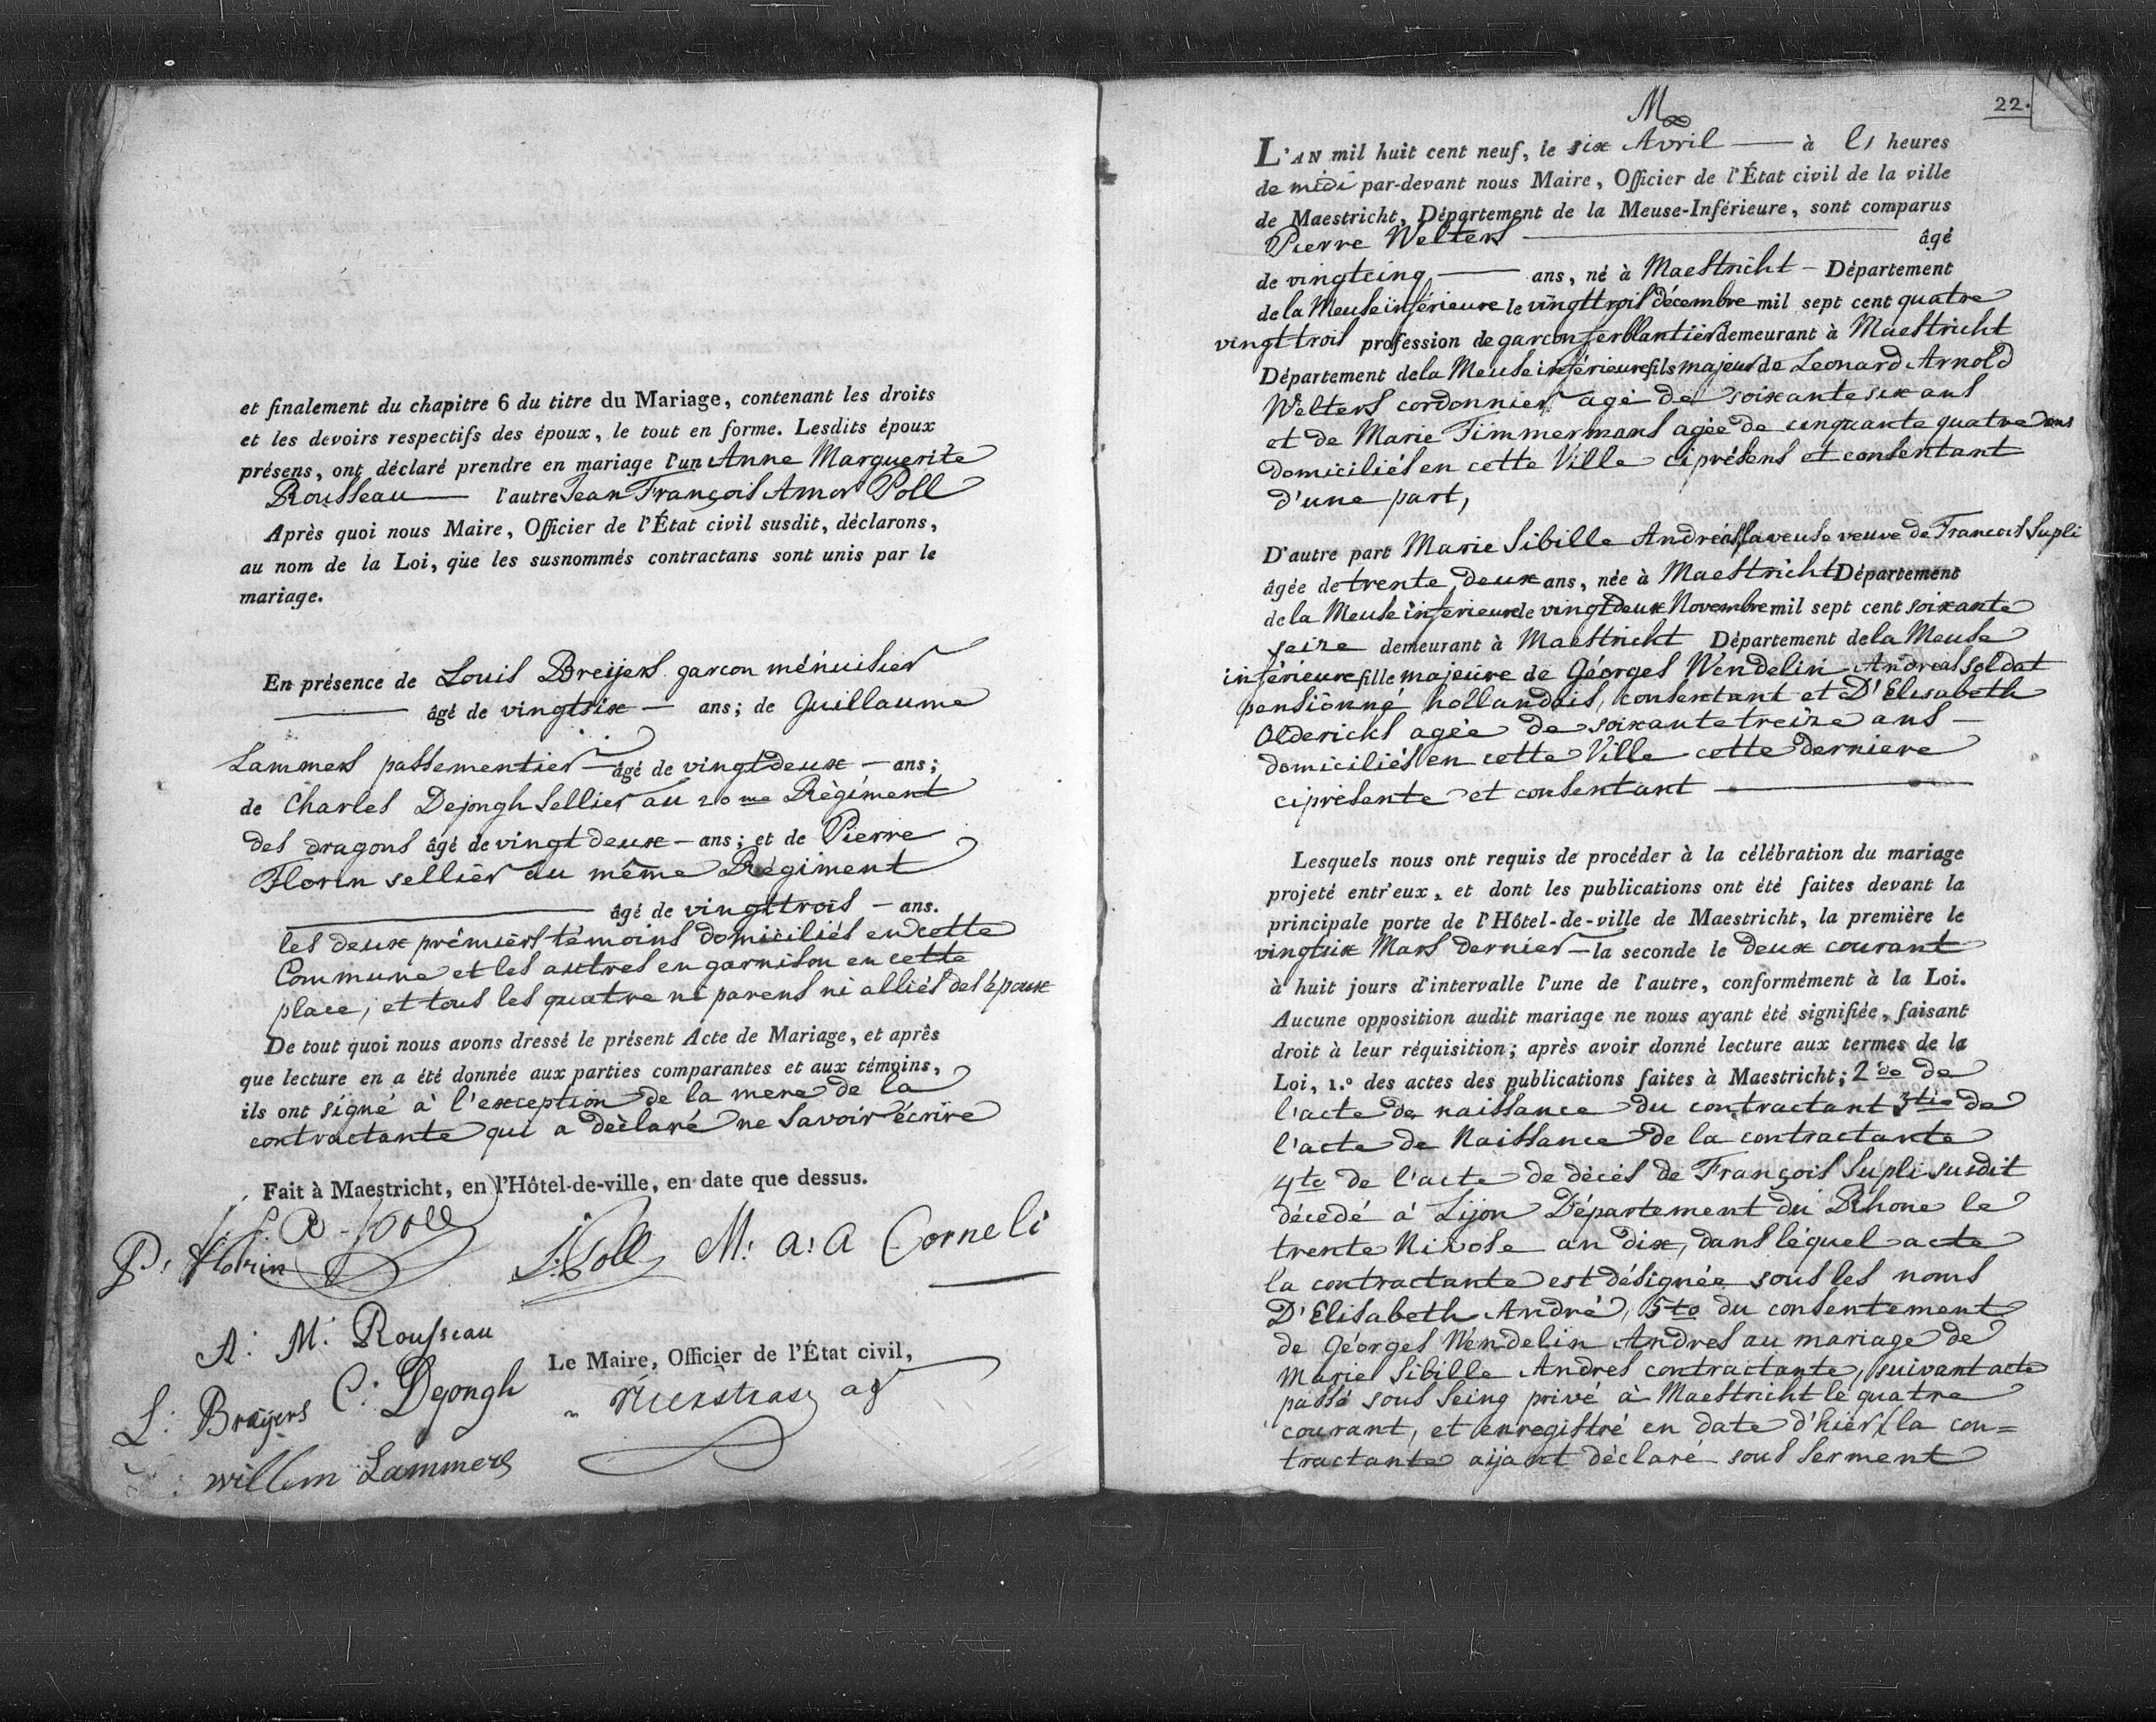 et finalement du chapitre 6 du titre du Mariage, contenant les droits
et les devoirs respectifs des époux, le tout en forme. Lesdits époux
présens, ont déclaré prendre en mariage l'un Anne Marguerite
Rousseau — l'autre Jean François Amor Poll
Après quoi nous Maire, Officier de l'État civil susdit, déclarons,
au nom de la Loi, que les susnommés contractans sont unis par le
mariage.
En présence de Louis Breijers garcon ménuisier
— âgé de vingtsix — ans; de Guillaume
Lammers passementier — âgé de vingtdeux — ans;
de Charles Dejongh sellier au 20me Règiment
des dragons âgé de vingt deux — ans; et de Pierre
Florin sellier au même Régiment
— âgé de vingttrois — ans.
les deux prémiers témoins domiciliés en cette
Commune et les autres en garnison en cette
place; et tous les quatre ni parens ni alliés des époux
De tout quoi nous avons dressé le présent Acte de Mariage, et après
que lecture en a été donnée aux parties comparantes et aux témoins,
ils ont signé à l'exception de la mere de la
contractante qui a dèclaré ne savoir écrire
Fait à Maestricht, en l'Hôtel-de-ville, en date que dessus.
P: Florin
Poll M: a: a Corneli
A: M: Rousseau
Le Maire, Officier de l'État civil,
L: Breijers C: Dejongh
willem Lammers
22.
L'AN mil huit cent neuf, le six Avril — à heures
de midi par-devant nous Maire, Officier de l'État civil de la ville
de Maestricht, Département de la Meuse-Inférieure, sont comparus
Pierre Welters — âgé
de vingtcinq — ans, né à Maestricht — Département
de la Meuse inférieure le vingttrois décembre mil sept cent quatre
vingt trois profession de garcon ferblantier demeurant à Maestricht
Département de la Meuse inférieure fils majeur de Leonard Arnold
Welters cordonnier agé de soixante six ans
et de Marie Timmermans agée de cinquante quatre ans
domiciliés en cette Ville ciprésens et consentant
d'une part,
D'autre part Marie Sibille Andréas, laveuse veuve de Francois Supli
âgée de trente deux ans, née à Maestricht Département
de la Meuse inferieure le vingtdeux Novembre mil sept cent soixante
seize demeurant à Maestricht Département de la Meuse
inférieure fille majeure de Géorges Wendelin Andreas soldat
pensionné hollandais, consentant et D'Elisabeth
Oldericks agée de soixante treize ans —
domiciliés en cette Ville cette derniere
ciprésente et consentant —
Lesquels nous ont requis de procéder à la célébration du mariage
projeté entr'eux, et dont les publications ont été faites devant la
principale porte de l'Hôtel-de-ville de Maestricht, la première le
vingtsix Mars dernier — la seconde le deux courant
à huit jours d'intervalle l'une de l'autre, conformément à la Loi.
Aucune opposition audit mariage ne nous ayant été signifiée, faisant
droit à leur réquisition; après avoir donné lecture aux termes de la
Loi, 1.° des actes des publications faites à Maestricht; 2do de
l'acte de naissance du contractant 3tio de
l'acte de Naissance de la contractante
4to de l'acte de décés de François Supli susdit
décedé à Lijon Département du Rhone le
trente Nivose an dix, dans léquel acte
la contractante est désignée sous les noms
D'Elisabeth André, 5to du consentement
de Géorges Wendelin Andres au mariage de
Marie Sibille Andres contractante, suivant acte
passé sous seing privé à Maestricht le quatre
courant, et enregistré en date d'hier (la con=
tractante aijant déclaré sous serment